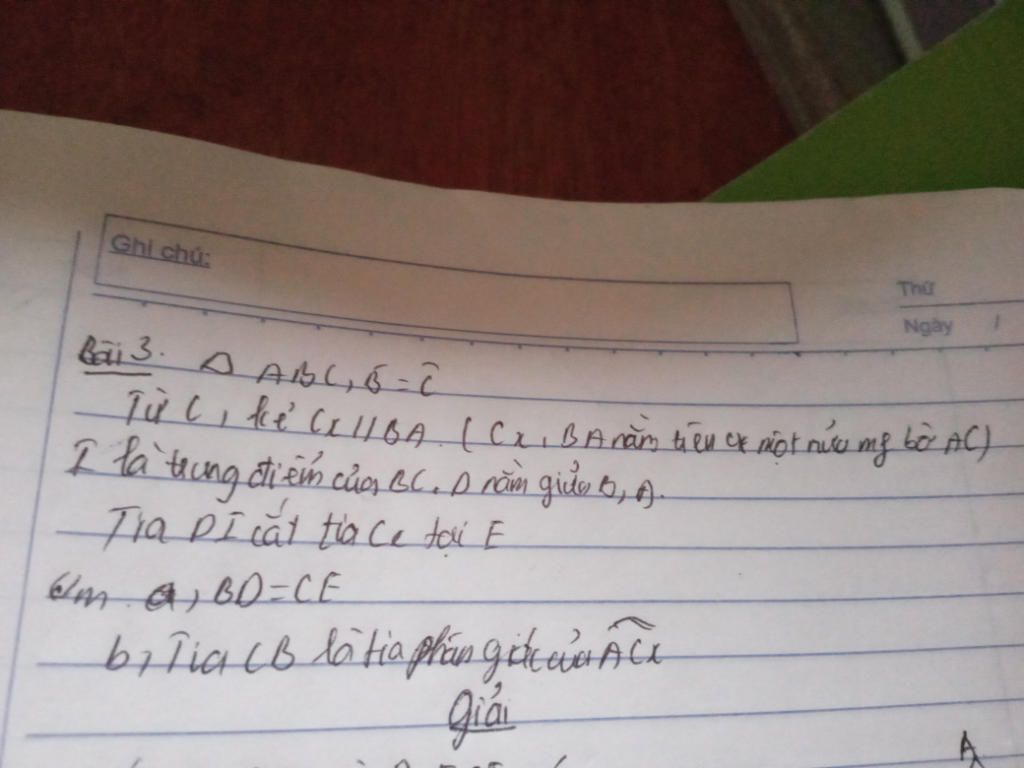 Ghi chú:
Thứ
Ngày /
Bài 3. Δ ABC, B̂ = Ĉ
Từ C, kẻ Cx // BA. (Cx, BA nằm trên một nửa mp bờ AC)
I là trung điểm của BC. D nằm giữa B, A.
Tia DI cắt tia Cx tại E
c/m. a, BD = CE
b, Tia CB là tia phân giác của ACx
Giải
A